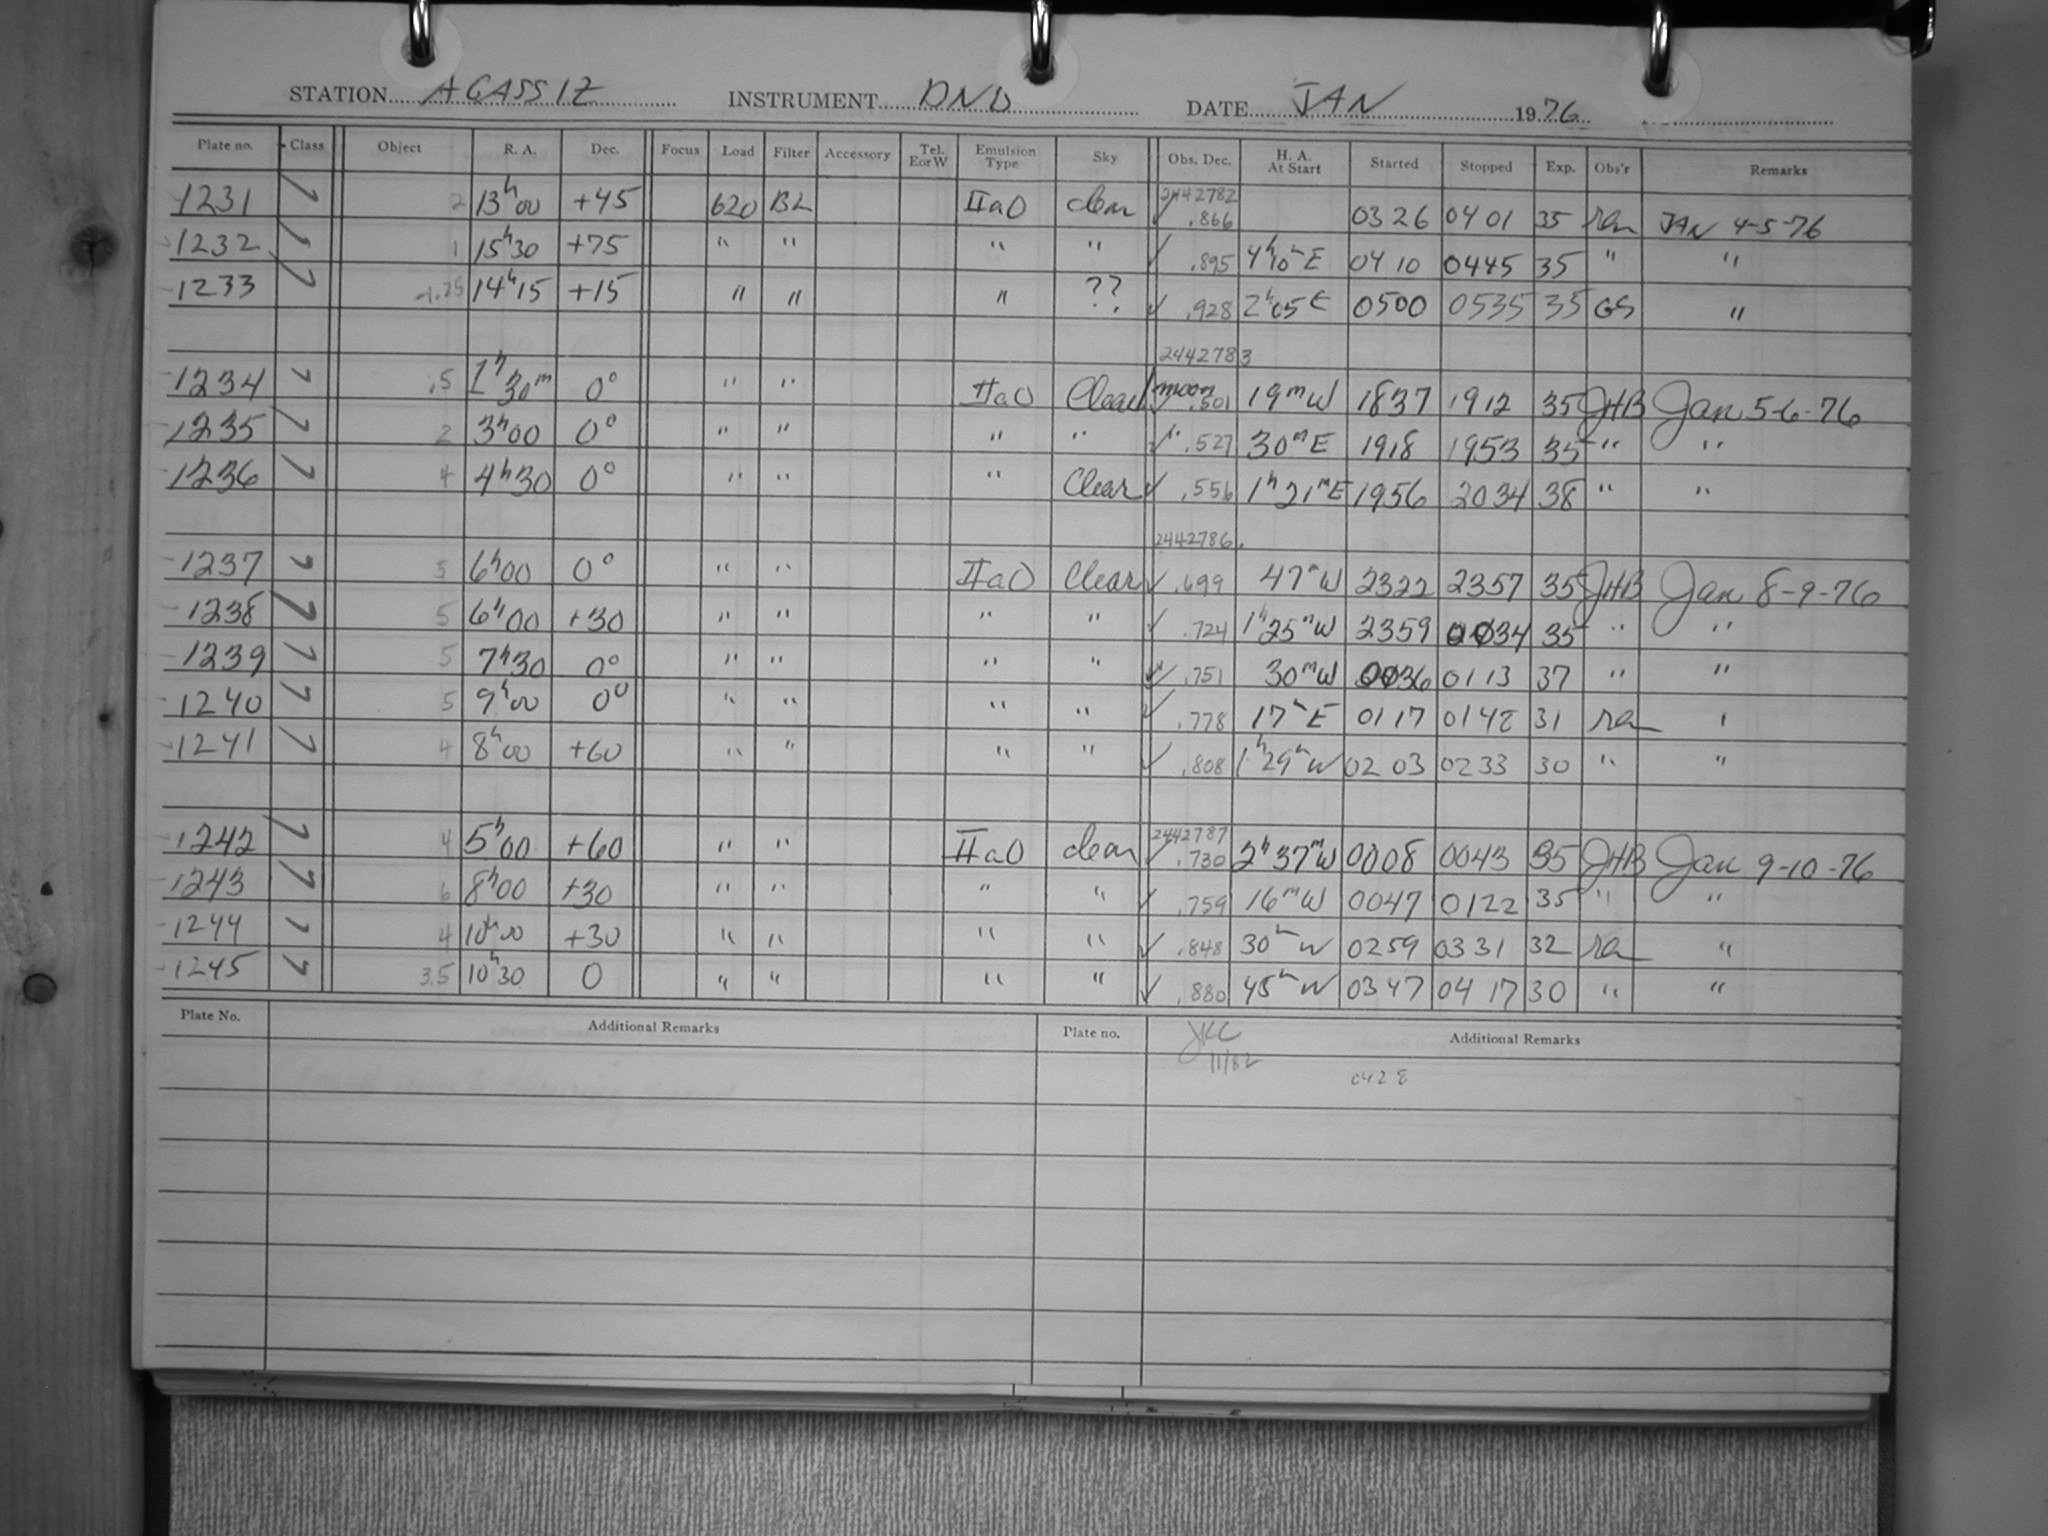 STATION AGASSIZ INSTRUMENT DNB DATE JAN 1976
Plate no. Class Object R. A. Dec. Focus Load Filter Accessory Tel. E or W Emulsion Type Sky Obs. Dec. H. A. At Start Started Stopped Exp. Obs'r Remarks
2442782
1231 2 13h00 +45 620 BL IIaO clear ✓ .866 0326 0401 35 JAN 4-5-76
1232 1 15h30 +75 " " " " ✓ .895 4h10m E 0410 0445 35 " "
1233 -1.25 14h15 +15 " " " ?? ✓ .928 2h05 E 0500 0535 35 GS "
2442783
1234 .5 1h30m 0° " " IIaO Clear moon ✓ .501 19m W 1837 1912 35 JHB Jan 5-6-76
1235 2 3h00 0° " " " " ✓ " .527 30m E 1918 1953 35 " "
1236 4 4h30 0° " " " Clear ✓ .556 1h21m E 1956 2034 38 " "
2442786.
1237 5 6h00 0° " " IIaO Clear ✓ .699 47m W 2322 2357 35 JHB Jan 8-9-76
1238 5 6h00 +30 " " " " ✓ .724 1h25m W 2359 0034 35 " "
1239 5 7h30 0° " " " " ✓ .751 30m W 0036 0113 37 " "
1240 5 9h00 0° " " " " ✓ .778 17m E 0117 0148 31 "
1241 4 8h00 +60 " " " " ✓ .808 1h29m W 0203 0233 30 " "
2442787
1242 4 5h00 +60 " " IIaO clear ✓ .730 2h37m W 0008 0043 35 JHB Jan 9-10-76
1243 6 8h00 +30 " " " " ✓ .759 16m W 0047 0122 35 " "
1244 4 10h00 +30 " " " " ✓ .848 30m W 0259 0331 32 "
1245 3.5 10h30 0 " " " " ✓ .880 45m W 0347 0417 30 " "
Plate No. Additional Remarks Plate no. Additional Remarks
JKC
11/82
0428